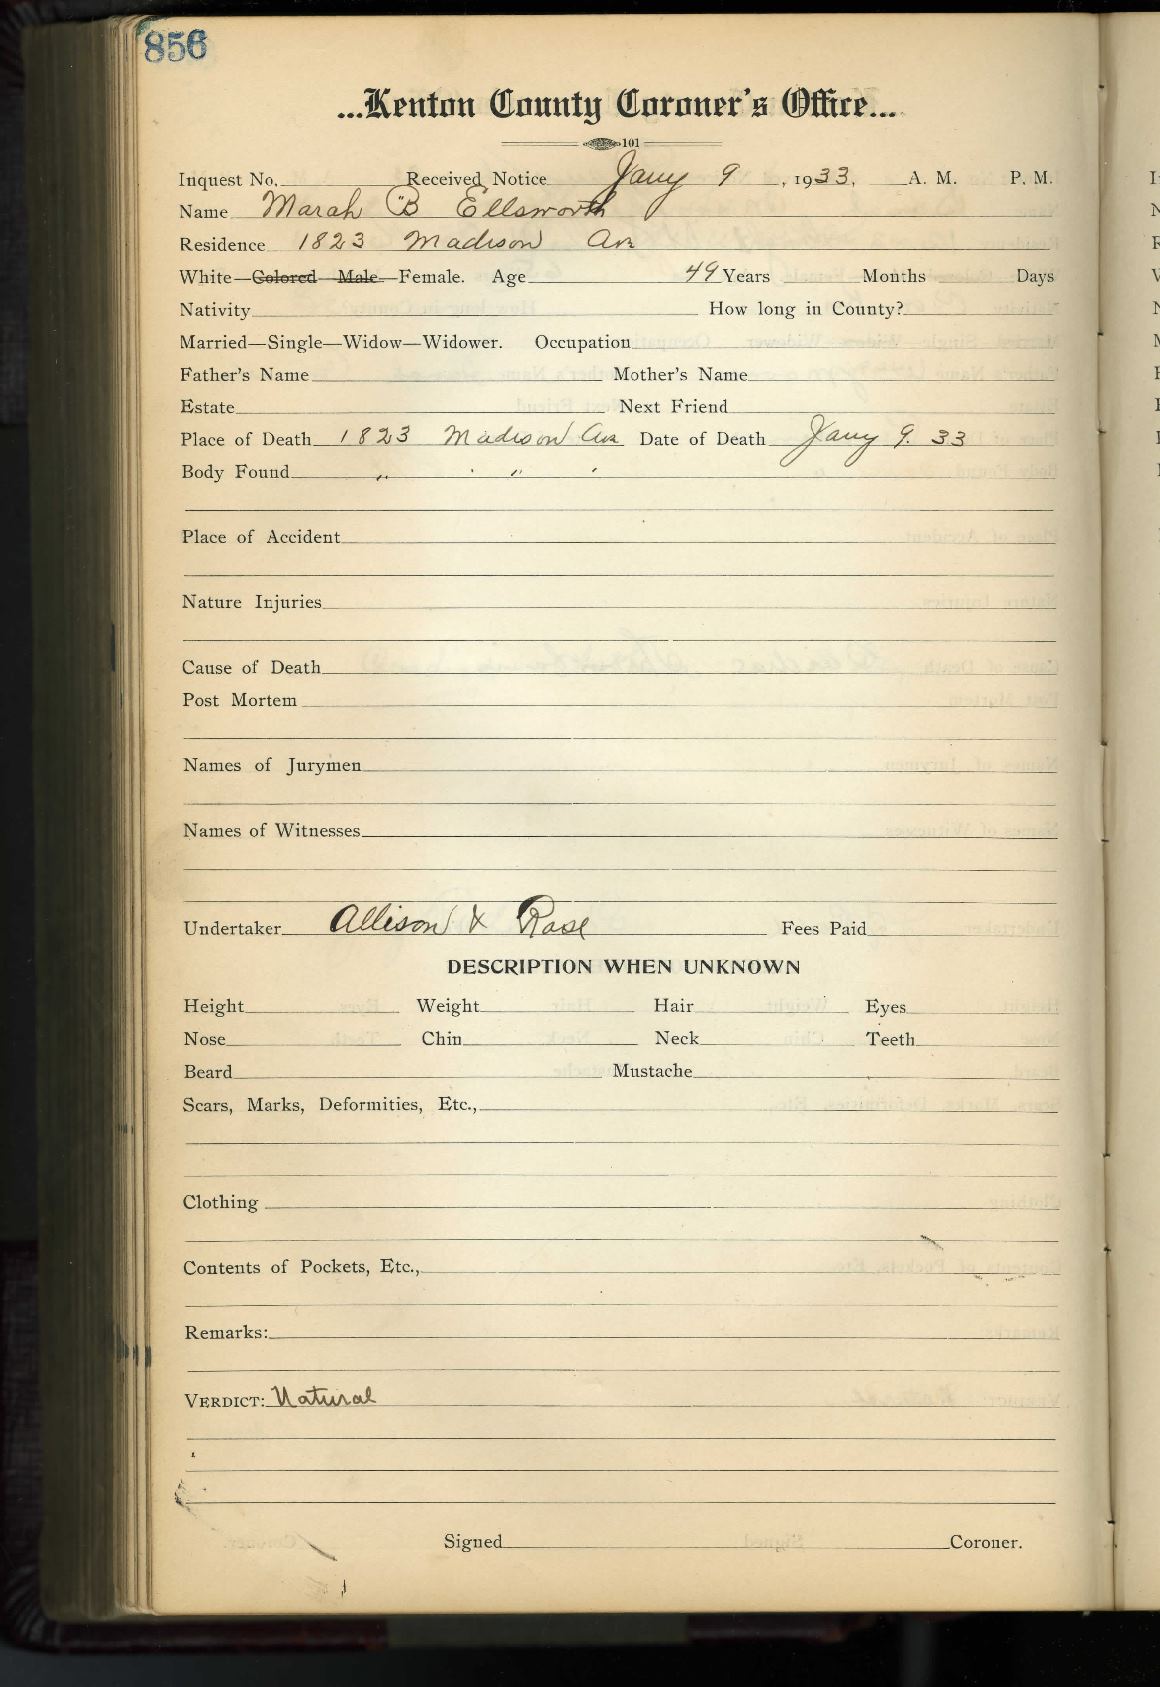 856
...Kenton County Coroner's Office...
101
Inquest No. Received Notice Jany 9, 1933, A. M. P. M.
Name Marah B Ellsworth
Residence 1823 Madison Ave
White—Colored—Male—Female. Age 49 Years Months Days
Nativity How long in County?
Married—Single—Widow—Widower. Occupation
Father's Name Mother's Name
Estate Next Friend
Place of Death 1823 Madison Ave Date of Death Jany 9. 33
Body Found " " "
Place of Accident
Nature Injuries
Cause of Death
Post Mortem
Names of Jurymen
Names of Witnesses
Undertaker Allison & Rose Fees Paid
DESCRIPTION WHEN UNKNOWN
Height Weight Hair Eyes
Nose Chin Neck Teeth
Beard Mustache
Scars, Marks, Deformities, Etc.,
Clothing
Contents of Pockets, Etc.,
Remarks:
VERDICT: Natural
Signed Coroner.